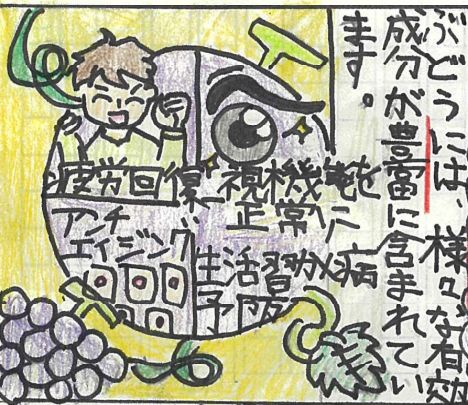 ぶどうには、様々な有効
成分が豊富に含まれてい
ます。
疲労回復
視機能を
正常に
アンチ
エイジング
生活習慣病
予防